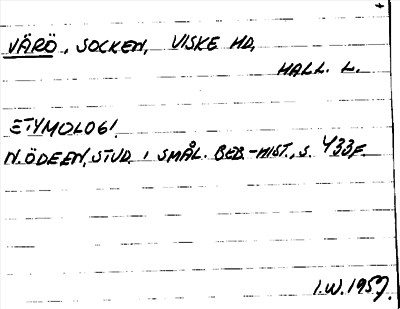 VÄRÖ, SOCKEN, VISKE HD,
HALL. L.
ETYMOLOGI.
N. ÖDEEN, STUD. I SMÅL. BEB-HIST., S. 433F.
I.W. 1957.